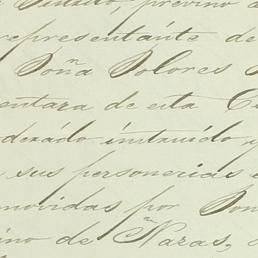 previno
representánte de
Doña Dolores
entara de esta
instruido y
sus personerias
movidas por Don
ino de Naras,